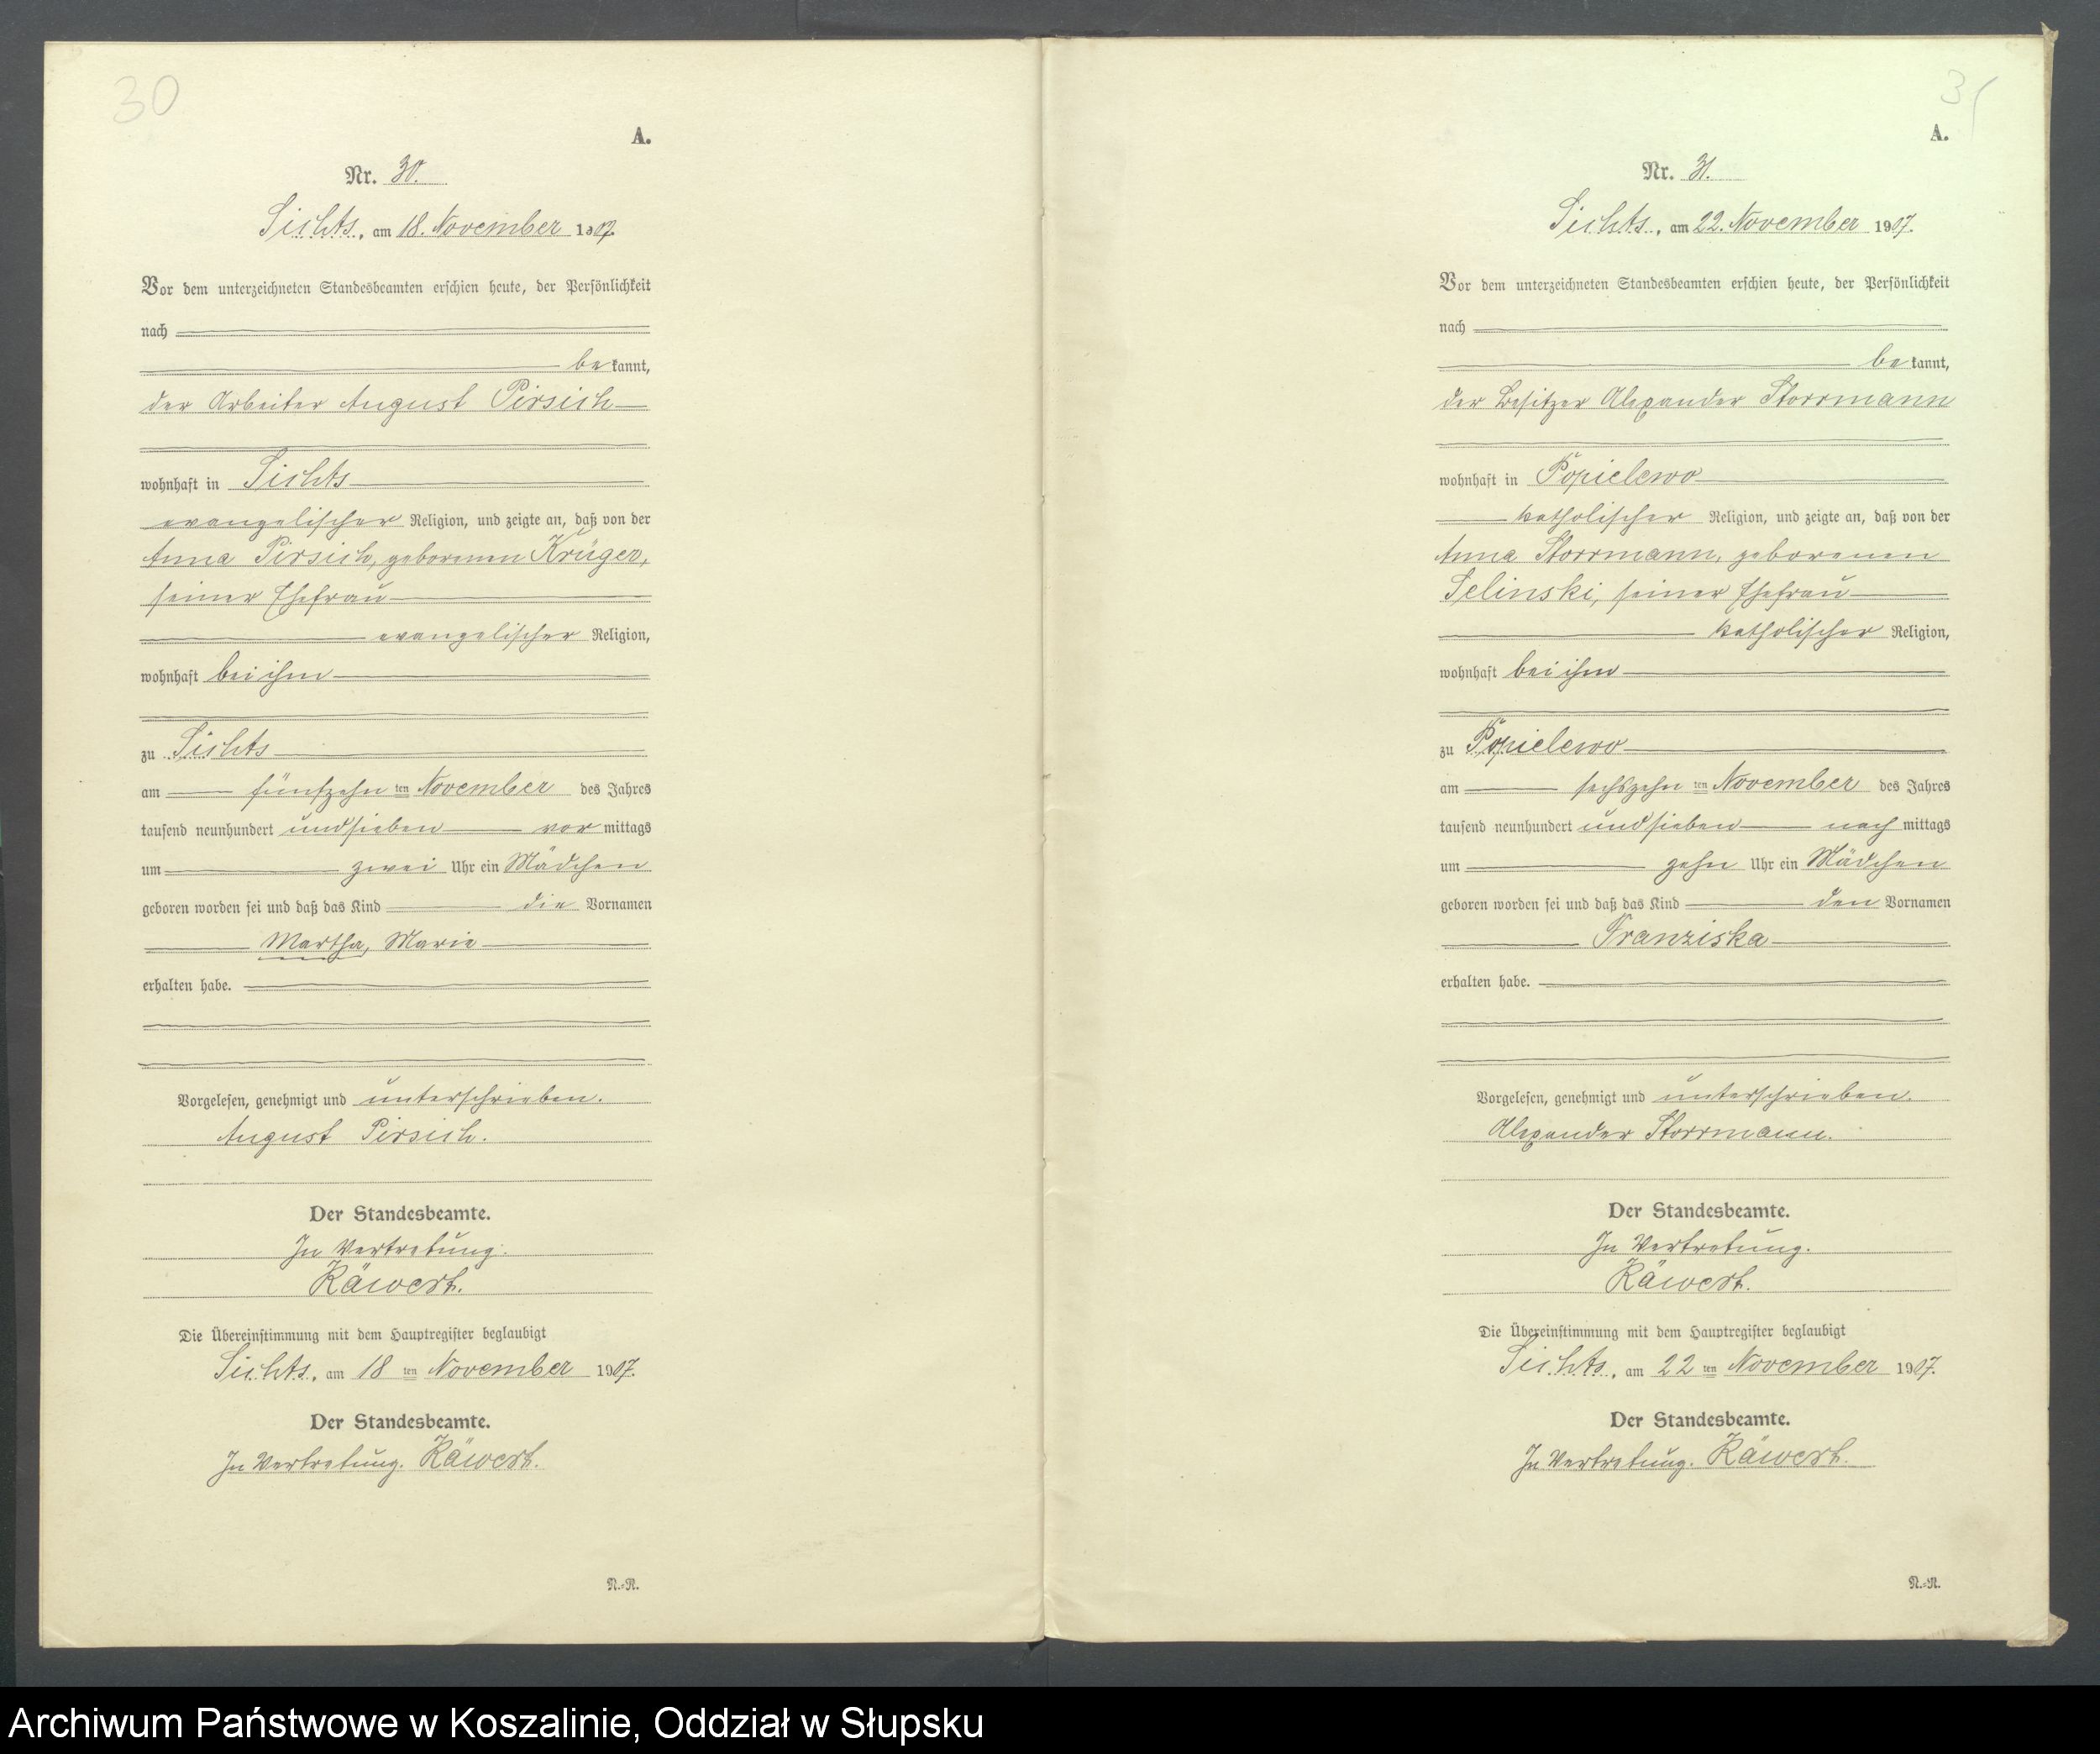 30
A.
Nr. 30.
Sichts, am 18. November 1907.
Vor dem unterzeichneten Standesbeamten erschien heute, der Persönlichkeit
nach
bekannt,
der Arbeiter August Pirsich
wohnhaft in Sichts
evangelischer Religion, und zeigte an, daß von der
Anna Pirsich, geborenen Krüger,
seiner Ehefrau
evangelischer Religion,
wohnhaft bei ihm
zu Sichts
am fünfzehn ten November des Jahres
tausend neunhundert und sieben vormittags
um zwei Uhr ein Mädchen
geboren worden sei und daß das Kind die Vornamen
Martha, Marie
erhalten habe.
Vorgelesen, genehmigt und unterschrieben.
August Pirsich.
Der Standesbeamte.
In Vertretung.
Räwert.
Die Übereinstimmung mit dem Hauptregister beglaubigt
Sichts, am 18 ten November 1907.
Der Standesbeamte.
In Vertretung. Räwert.
N.=R.
31
A.
Nr. 31.
Sichts, am 22. November 1907.
Vor dem unterzeichneten Standesbeamten erschien heute, der Persönlichkeit
nach
bekannt,
der Besitzer Alexander Storrmann
wohnhaft in Popielewo
katholischer Religion, und zeigte an, daß von der
Anna Storrmann, geborenen
Selinski, seiner Ehefrau
katholischer Religion,
wohnhaft bei ihm
zu Popielewo
am sechszehn ten November des Jahres
tausend neunhundert und sieben nachmittags
um zehn Uhr ein Mädchen
geboren worden sei und daß das Kind den Vornamen
Franziska
erhalten habe.
Vorgelesen, genehmigt und unterschrieben.
Alexander Storrmann.
Der Standesbeamte.
In Vertretung.
Räwert.
Die Übereinstimmung mit dem Hauptregister beglaubigt
Sichts, am 22 ten November 1907.
Der Standesbeamte.
In Vertretung. Räwert.
N.=R.
Archiwum Państwowe w Koszalinie, Oddział w Słupsku